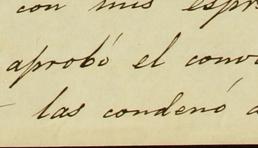 con mis espr
aprobó el conv
las condenó a